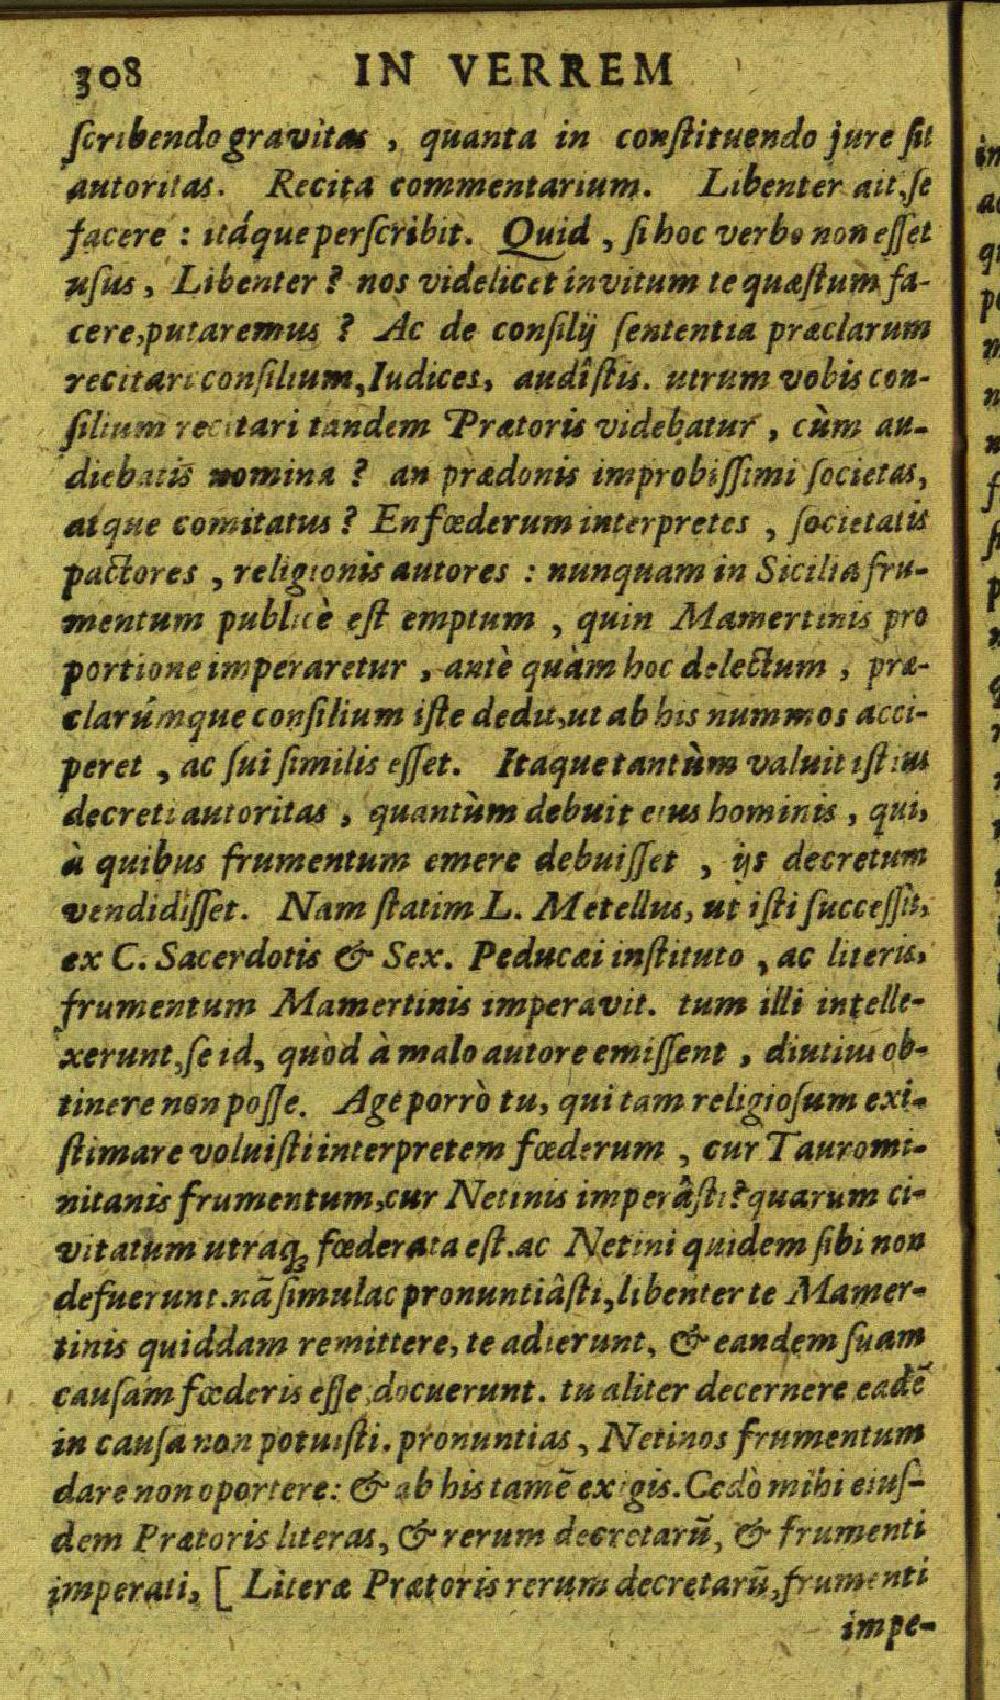 308 IN VERREM
ſcribendo gravitas , quanta in conſtituendo jure ſit
autoritas. Recita commentarium. Libenter ait, ſe
facere : itáque perſcribit. Quid , ſi hoc verbo non eſſet
uſus, Libenter ? nos videlicet invitum te quæſtum fa-
cere, putaremus ? Ac de conſilij ſententia præclarum
recitari conſilium, Iudices, audîſtis. utrum vobis con-
ſilium recitari tandem Prætoris videbatur , cùm au-
diebatis nomina ? an prædonis improbiſſimi ſocietas,
atque comitatus ? En fœderum interpretes , ſocietatis
pactores , religionis autores : nunquam in Sicilia fru-
mentum publicè eſt emptum , quin Mamertinis pro
portione imperaretur , antè quàm hoc delectum , præ-
clarúmque conſilium iſte dedit, ut ab his nummos acci-
peret , ac ſui ſimilis eſſet. Itaque tantùm valuit iſtius
decreti autoritas , quantùm debuit eius hominis , qui,
à quibus frumentum emere debuiſſet , ijs decretum
vendidiſſet. Nam ſtatim L. Metellus, ut iſti ſucceſſit,
ex C. Sacerdotis & Sex. Peducæi inſtituto , ac literis,
frumentum Mamertinis imperavit. tum illi intelle-
xerunt, ſe id, quòd à malo autore emiſſent , diutius ob-
tinere non poſſe. Age porrò tu, qui tam religioſum exi-
ſtimare voluiſti interpretem fœderum , cur Tauromi-
nitanis frumentum, cur Netinis imperâſti? quarum ci-
vitatum utraq; fœderata eſt. ac Netini quidem ſibi non
defuerunt. nã ſimulac pronuntiâſti, libenter te Mamer-
tinis quiddam remittere, te adierunt, & eandem ſuam
cauſam fœderis eſſe docuerunt. tu aliter decernere eadẽ
in cauſa non potuiſti. pronuntias, Netinos frumentum
dare non oportere: & ab his tamẽ exigis. Cedò mihi eiuſ-
dem Prætoris literas, & rerum decretarũ, & frumenti
imperati, [ Literæ Prætoris rerum decretarũ, frumenti
impe-